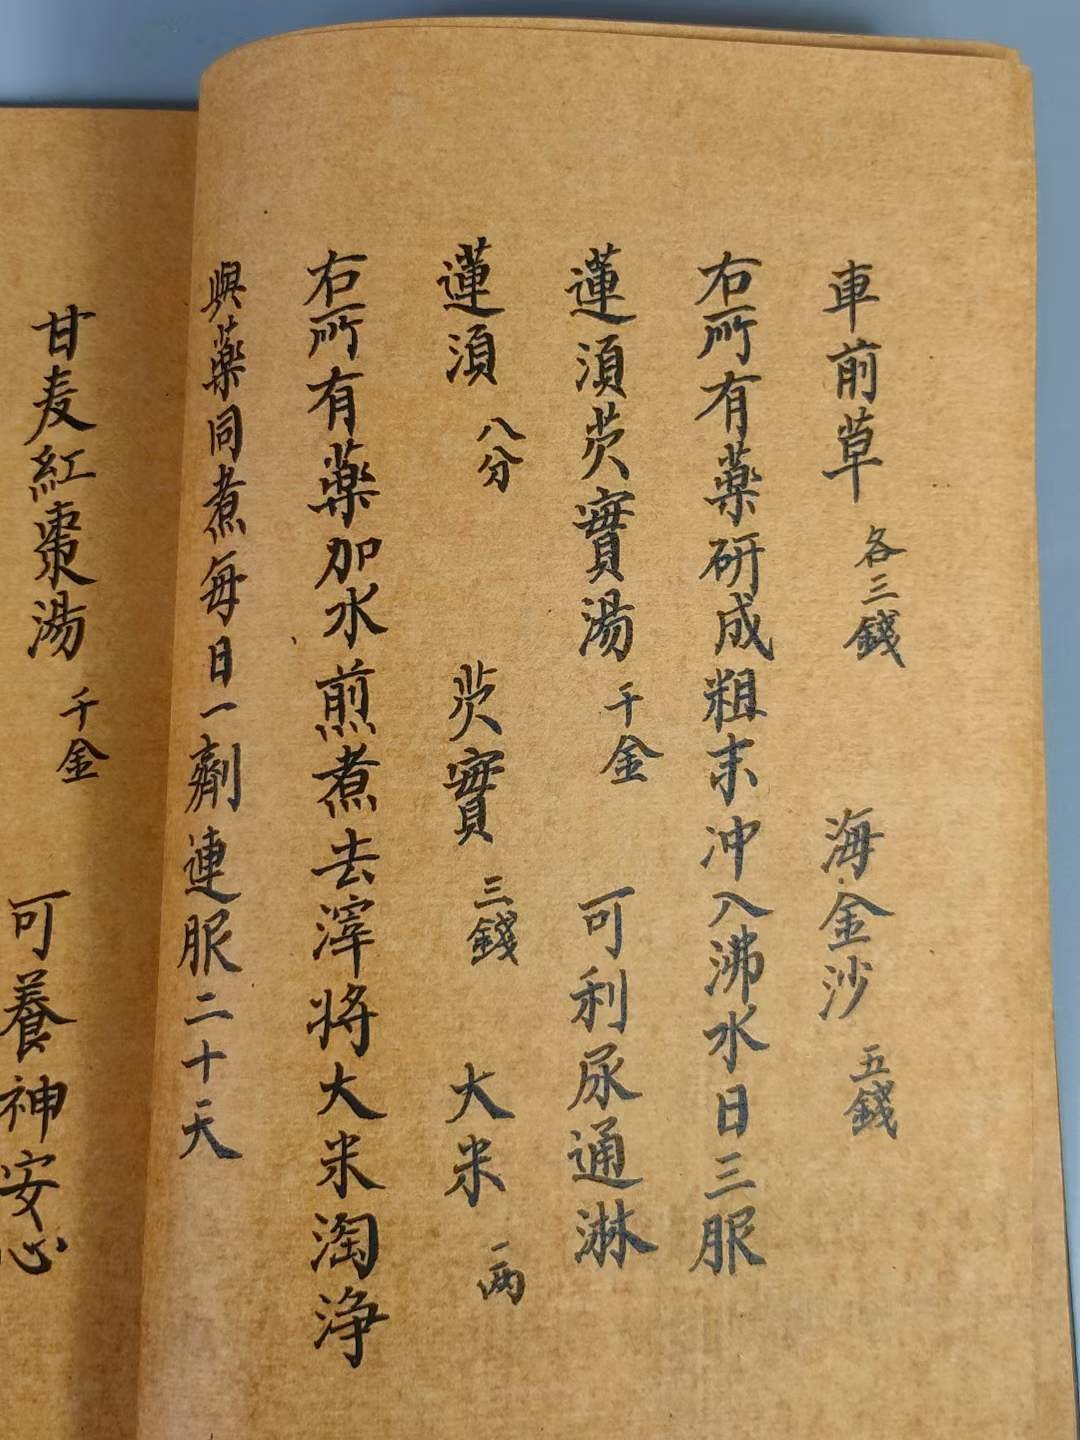 車前草 各三錢 海金沙 五錢
右所有藥研成粗末冲入沸水日三服
蓮湏芡實湯 千金 可利尿通淋
蓮湏 八分 芡實 三錢 大米 一两
右所有藥加水煎煮去滓將大米淘淨
與藥同煮每日一劑連服二十天
甘麦紅棗湯 千金 可養神安心